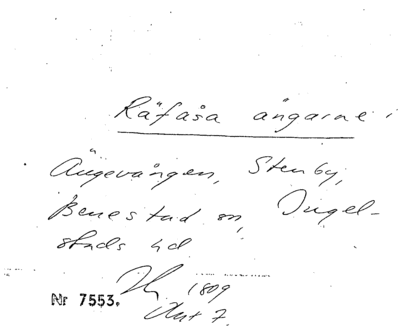 Räfåsa ängarne i
Ängevången, Stenby,
Benestad sn, Ingel-
stads hd
1809
Nr 7553.
Akt 7.